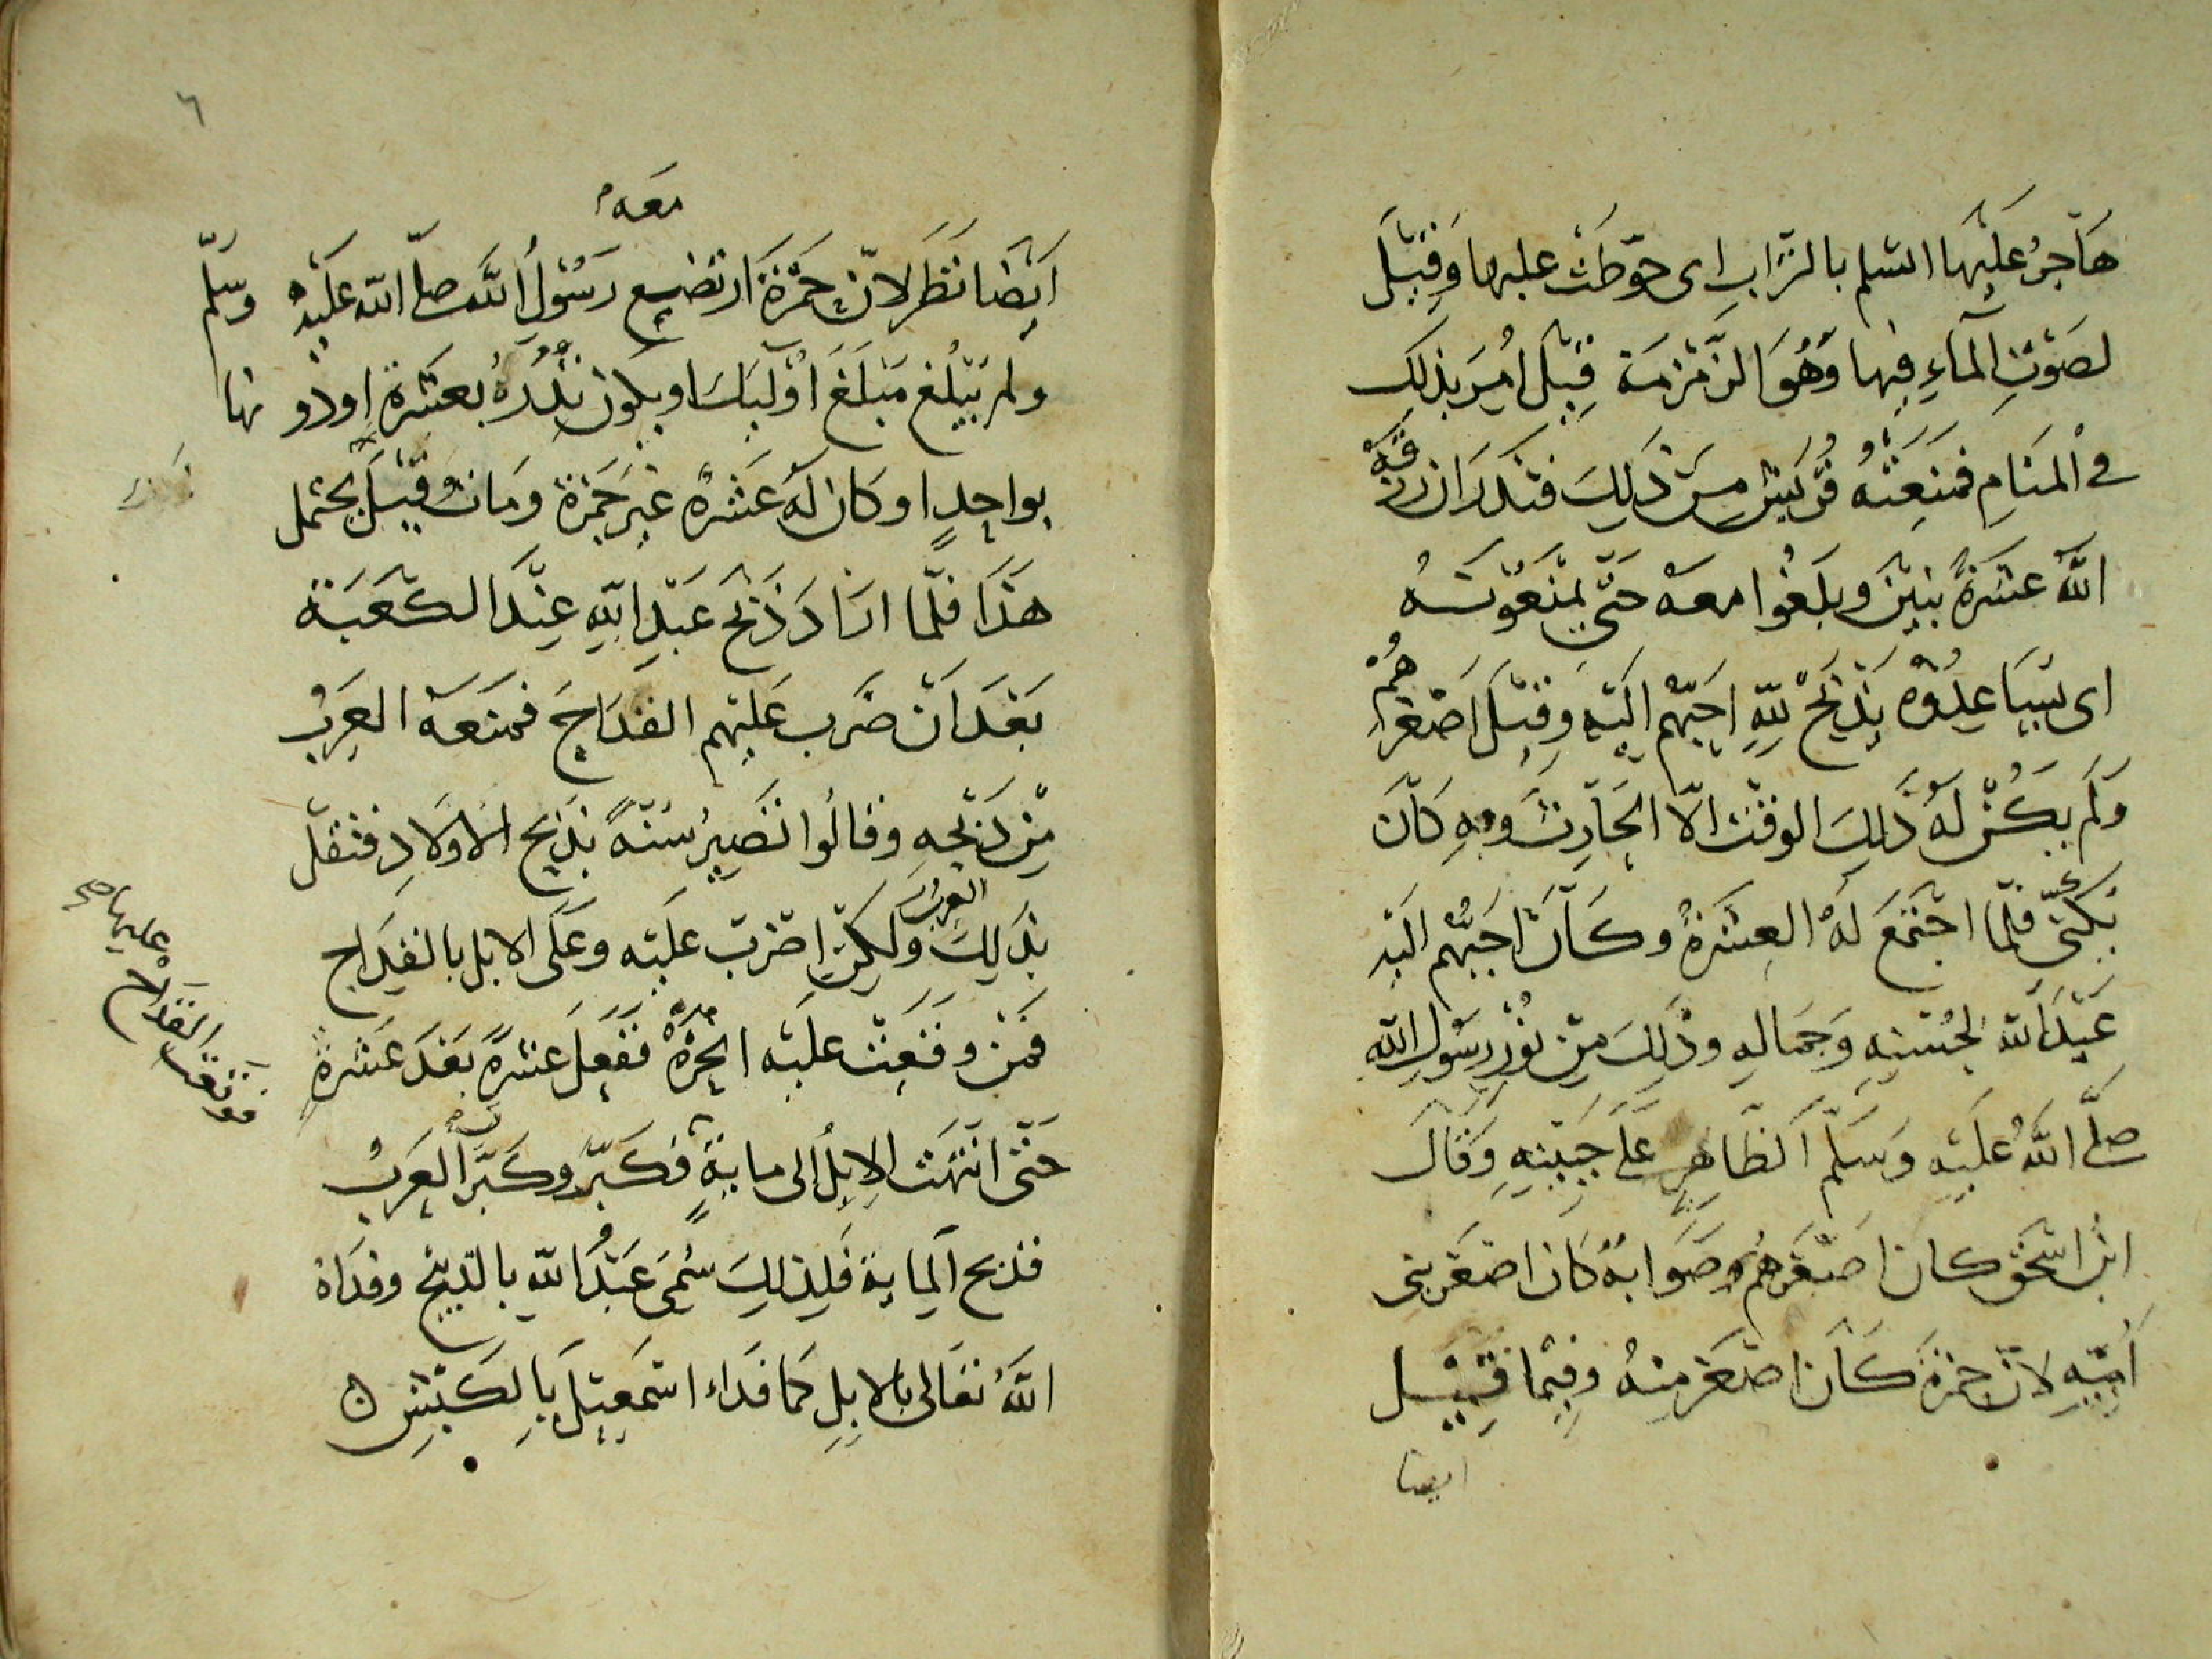 هَاجَرُ عَلَيْهَا السّلم بالتُّرَابِ اى حوّطَتْ عليها وَقِيْلَ
لصَوْتِ الْمَآءِ فِيها وَهُوَ الزَّمْزَمَة قِيْلَ اُمِرَ بذلِكَ
في الْمَنَامِ فَمَنَعَتْهُ قُرَيْش مِنْ ذَلِكَ فنَذَرَ ان رزقَهُ
اللهُ عَشَرَةً بنِيْنَ وبَلَغُوا معهُ حَتّى يَمْنَعُوْنَهُ
اى ممّا عدُوّه يَذْبَحْ لِلّهِ احَبّهُم اِلَيْهِ وَقِيْلَ اَصْغرهُمْ
وَلَم يَكُنْ لَهُ ذَلِكَ الوقْت الّا الحَارِثَ وَبِهِ كَانَ
يُكَنّى فلمّا اجْتَمَعَ لَهُ العشَرَةُ وكَانَ اَحَبُّهُم الَيْهِ
عَبْدَ اللّه لحُسْنِهِ وَجَمَالِهِ وذَلِكَ مِنْ نُوْرِ رسُولِ اللّهِ
صلَّى اللهُ عَلَيْهِ وَسَلّم الظَاهِرِ عَلَى جَبِيْنِهِ وَقَالَ
ابن اسْحَق كان اصْغَرَهُمْ وصَوَابهُ كَان اصْغَر بنى
اُمِّهِ لانّ حمْزَةَ كَانَ اصْغَرَ مِنهُ وفيْمَا قِيْل
ايضا
٦
معهُ
اَيْضًا نَظَر لانّ حَمْزَةَ ارتضع رَسُوْلِ اللّه صلّى اللّه عَلَيْهِ وسلّم
ولم يَبْلُغ مَبْلَغَ اوْلَئِكَ او يكون نَذْرُهُ بعشَرَةٍ او دونها
بواحِدٍ او كان لَهُ عَشَرَةٌ غيْرَ حَمْزَة ومَات وقِيْلَ يحتمل
هَذَا فلَمّا ارَادَ ذَبْحَ عَبْدِ اللّهِ عِنْدَ الكَعْبَة
بَعْدَ اَنْ ضَرَب عَلَيْهِم القِدَاحَ فمَنَعَهُ العَرَبُ
مِنْ ذَبْحِهِ وقالُوا تَصِيْرُ سُنّةً بذَبْحِ الاولادِ فتقتَل
العَرَبُ
بذَلِكَ وَلكِنْ اضْرب عَلَيْهِ وعَلَى الابِل بالقِدَاحِ
فمَنْ وقَعَتْ علَيْه انْحَرْهُ ففَعَلَ عشرةً بَعْدَ عَشرةٍ
فوقعت القداح عليها صح
حَتّى انْتَهَت الاِبِلُ الى مايةٍ فكَبّر وكَبّرَت العَرَبُ
فذبح المِاية فَلِذلِكَ سُمّيَ عَبْدُ اللّهِ بالذبِيْحِ وفدَاهُ
اللهُ تعَالى بالابِلِ كَمَا فَدَاء اسْمَعِيْلَ بِالكَبْشِ